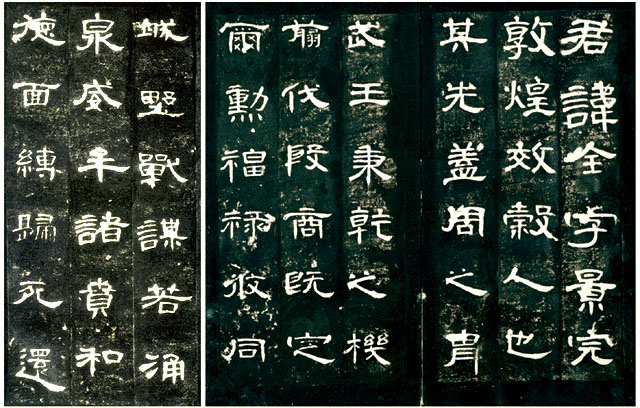 君諱全字景完
敦煌效穀人也
其先蓋周之胄
武王秉乾之機
翦伐殷商既定
爾勳福祿攸同
城野戰謀若涌
泉威牟諸賁和
德面縛歸死還